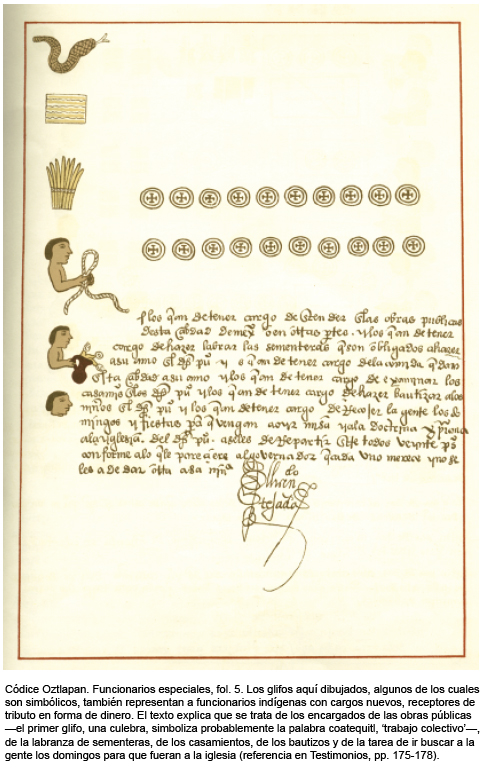 los qan de tener cargo de las obras publicas
desta en otras ptes. y los qan de tener
cargo de hazer labrar las sementeras q son obligados a hazer
a su amo El dho pu y qan de tener cargo de la comida q dan
a su amo y los qan de tener cargo de examinar los
dho pu y los qan de tener cargo de hazer bautizar a los
niños El dho pu y los qan de tener cargo de Recojer la gente los do
mingos y fiestas pa q vengan a oyr misa y a la doctrina xpiana
a la yglesia del dho pu. aseles de Repartir todos veynte ps
conforme a lo que pareciere al governador q cada uno merece y no se
les a de dar otra
Códice Oztlapan. Funcionarios especiales, fol. 5. Los glifos aquí dibujados, algunos de los cuales
son simbólicos, también representan a funcionarios indígenas con cargos nuevos, receptores de
tributo en forma de dinero. El texto explica que se trata de los encargados de las obras públicas
—el primer glifo, una culebra, simboliza probablemente la palabra coatequitl, ‘trabajo colectivo’—,
de la labranza de sementeras, de los casamientos, de los bautizos y de la tarea de ir buscar a la
gente los domingos para que fueran a la iglesia (referencia en Testimonios, pp. 175-178).